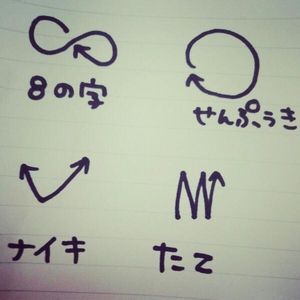 8の字
せんぷうき
ナイキ
たて